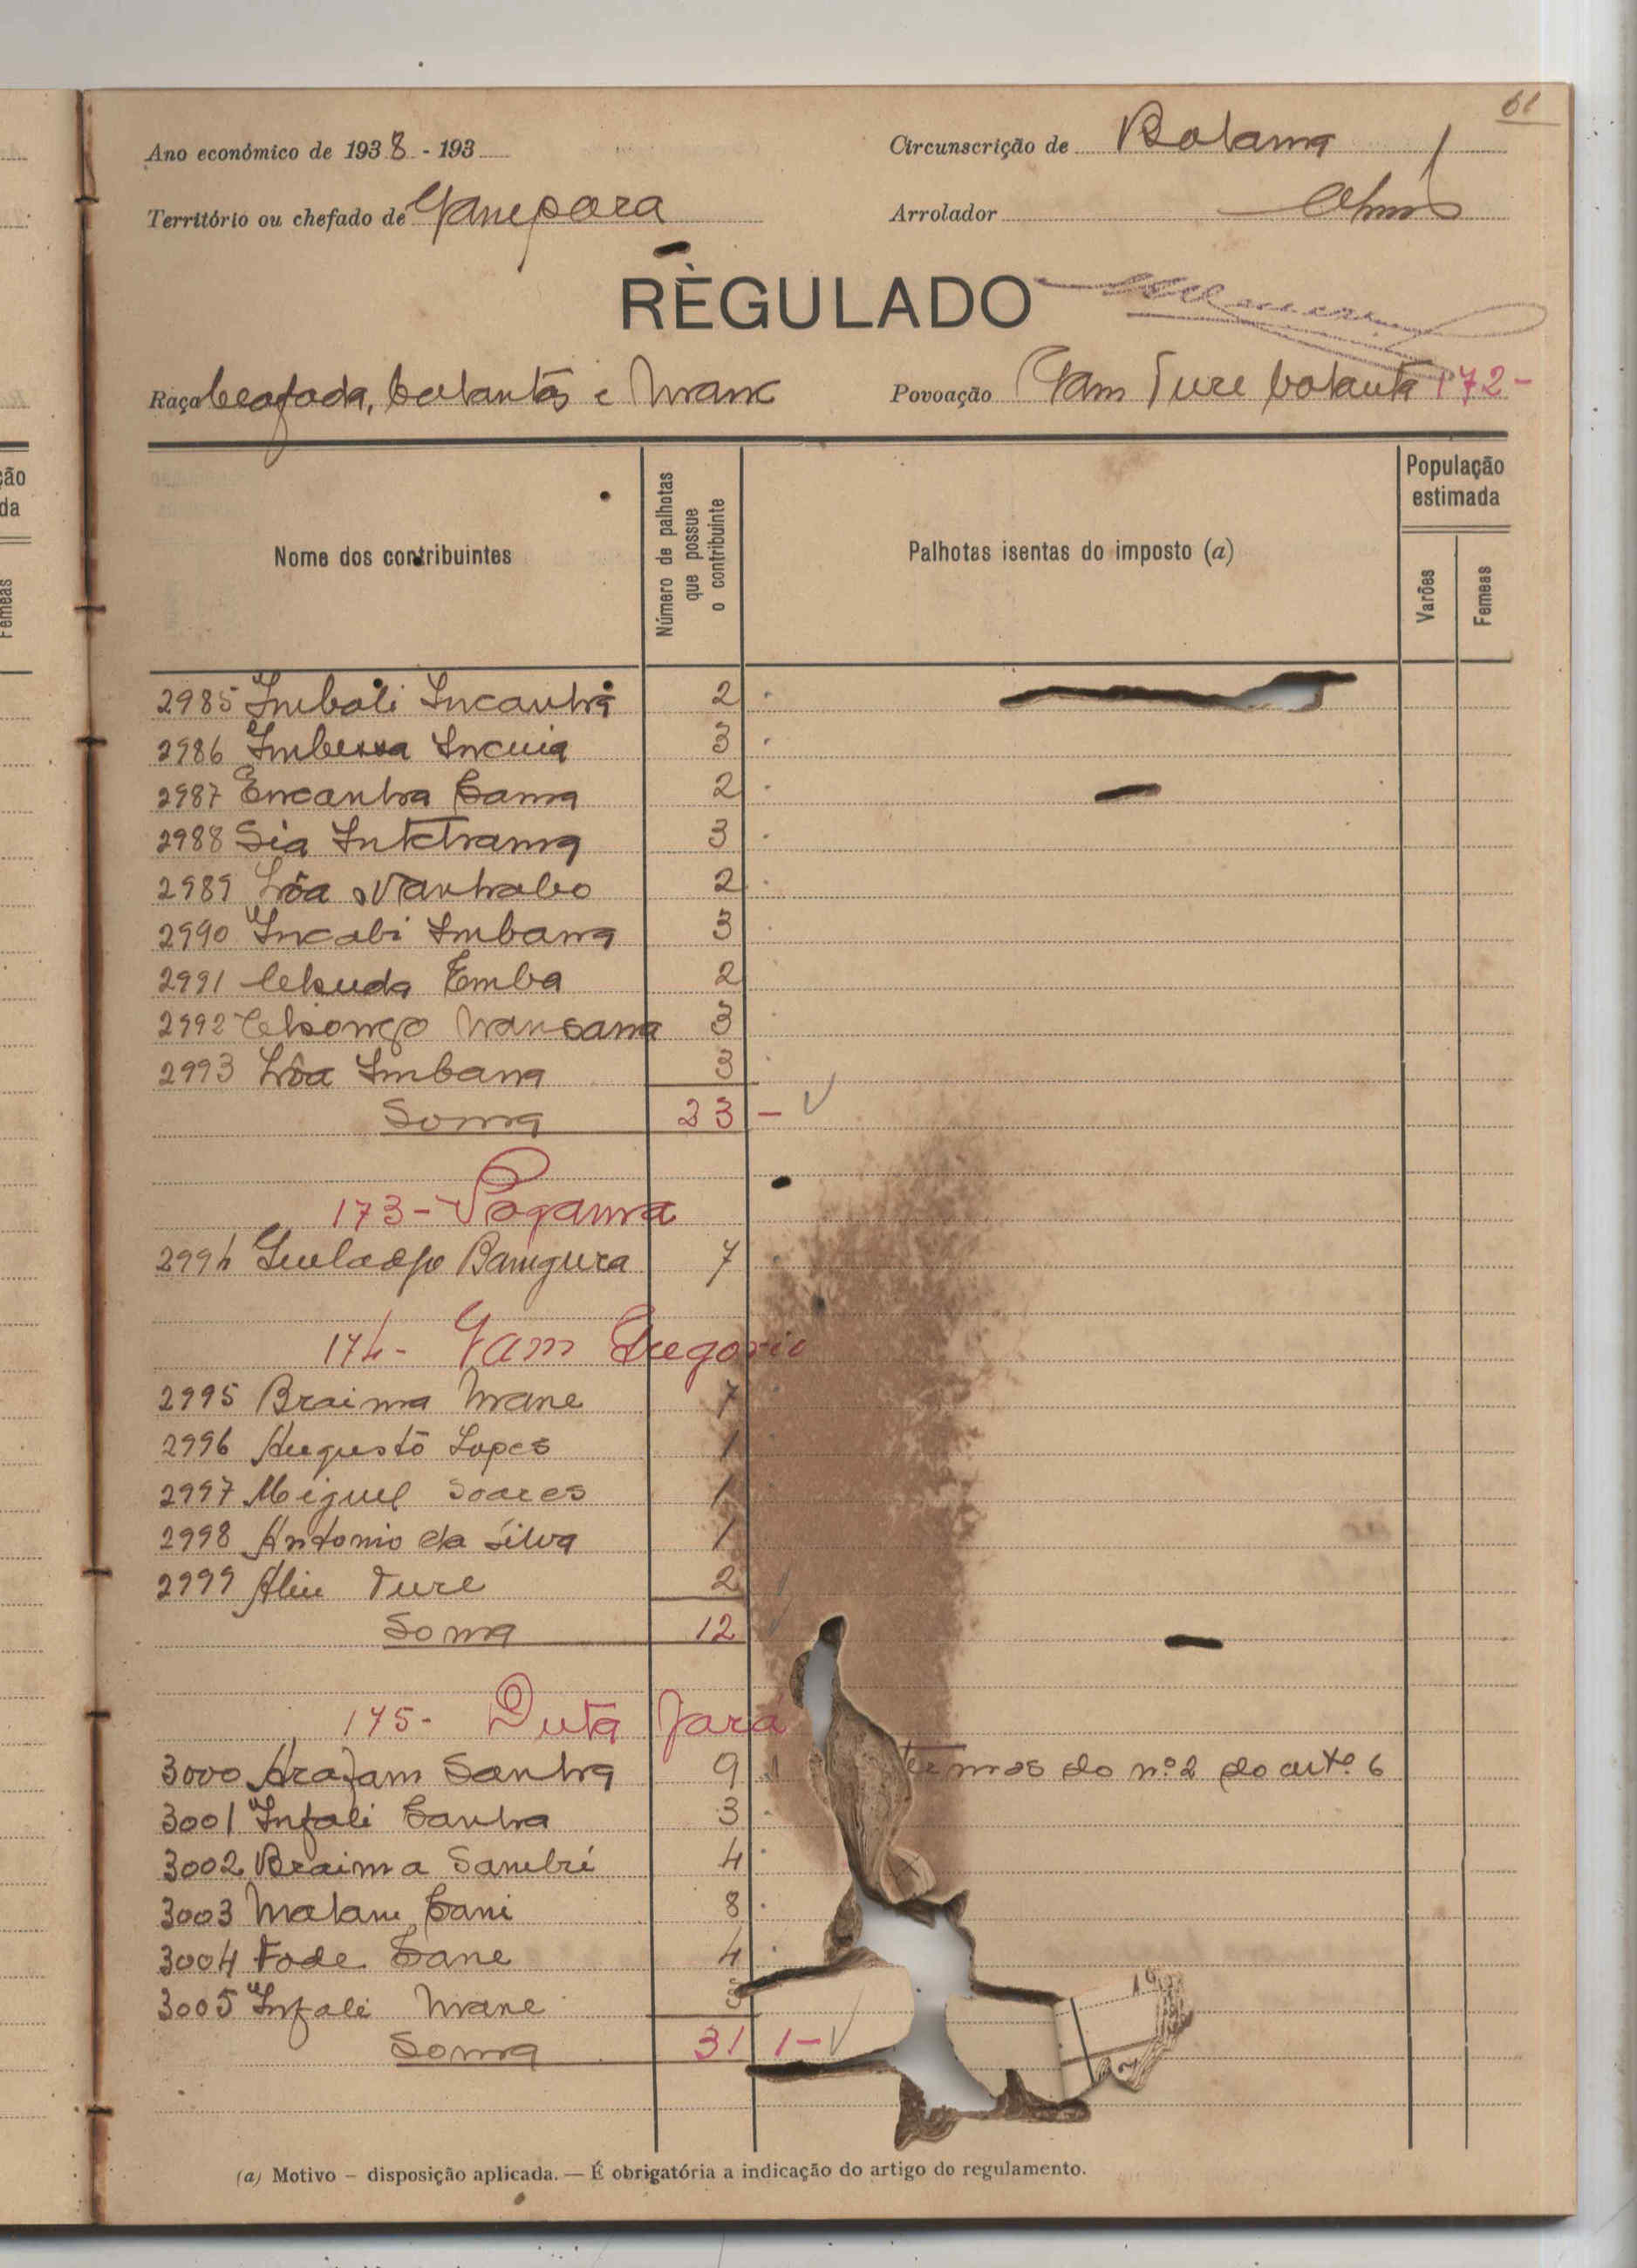 61
Ano económico de 1938 - 193
Circunscrição de Bolama
Território ou chefado de Ganepara
Arrolador
REGULADO
Raça beafada, balantas e Mane
Povoação Gam Ture balanta 172-
Nome dos contribuintes
Número de palhotas que possue o contribuinte
Palhotas isentas do imposto (a)
População estimada
Varões
Femeas
2985 Imbali Incanha 2
2986 Imbessa Incuia 3
2987 Encanha Sama 2
2988 Sia 3
2989 2
2990 Incabi Imbana 3
2991 Emba 2
2992 Mansama 3
2993 Imbana 3
Soma 23 -
173-
2994 Bangura 7
174- Gam Gregorio
2995 Braima Mane 7
2996 Augusto Lopes 1
2997 Miguel Soares 1
2998 Antonio da Silva 1
2999 Aliu Ture 2
Soma 12
175- Duta Jará
3000 Arafam Sanha 9 1 termos do nº 2 do artº 6
3001 Infali Sanha 3
3002 Braima Sambú 4
3003 Malam Sani 8
3004 Fode Sane 4
3005 Infali Mane 3
Soma 31 1-
(a) Motivo – disposição aplicada. — É obrigatória a indicação do artigo do regulamento.